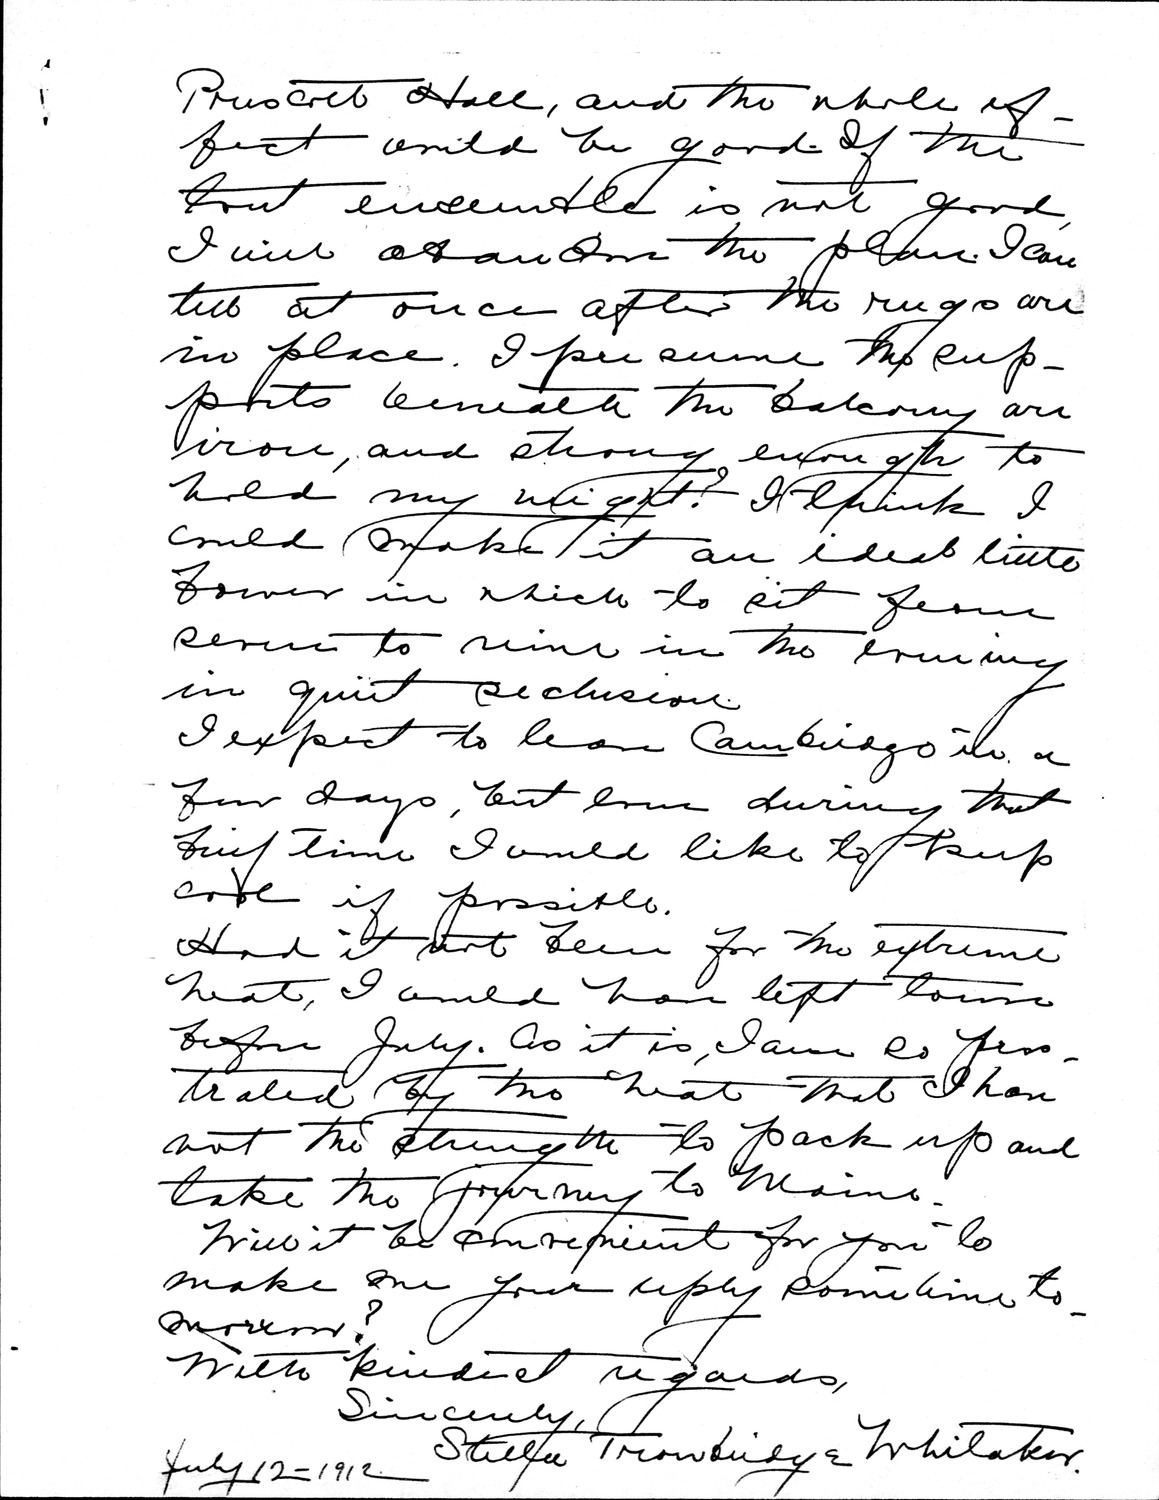 Prescott Hall, and the whole ef-
fect would be good. If the
tout ensemble is not good,
I will abandon the plan. I can
tell at once after the rugs are
in place. I presume the sup-
ports beneath the balcony are
iron, and strong enough to
hold my weight? I think I
could make it an ideal little
bower in which to sit from
seven to nine in the evening
in quiet seclusion.
I expect to leave Cambridge in a
few days, but even during that
brief time I would like to keep
cool if possible.
Had it not been for the extreme
heat, I would have left town
before July. As it is, I am so pros-
trated by the heat that I have
not the strength to pack up and
take the journey to Maine.
Will it be convenient for you to
make me your reply sometime to-
morrow?
With kindest regards,
Sincerely,
Stella Trowbridge Whitaker.
July 12-1912